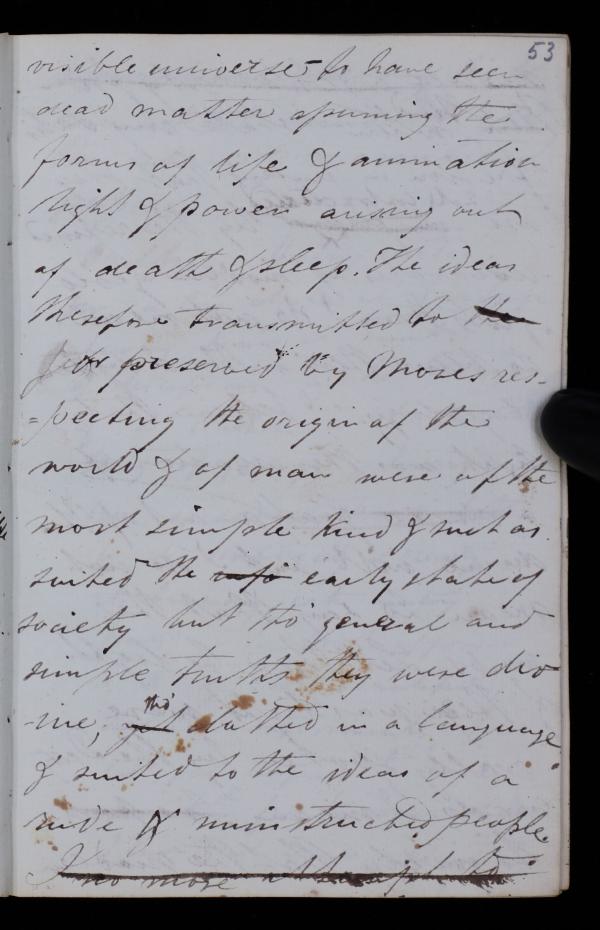 53
visible universe to have seen
dead matter assuming the
forms of life & animation
light & power arising out
of death & sleep. The ideas
therefore transmitted to the
or preserved by Moses res-
=pecting the origin of the
world & of man were of the
most simple kind & such as
suited the early state of
society but tho' general and
simple truths they were div
-ine, yet tho' clothed in a language
& suited to the ideas of a
rude & uninstructed people.
I no more attempt to